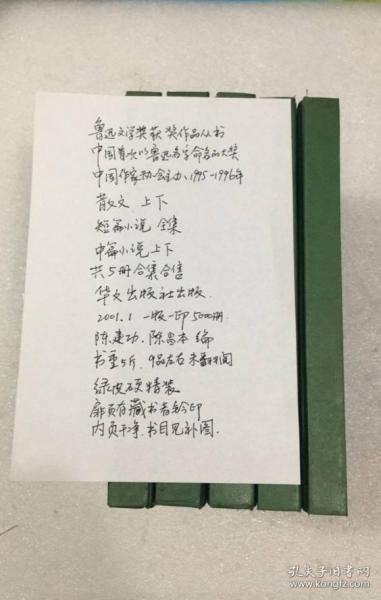 鲁迅文学奖获奖作品丛书
中国首次以鲁迅名字命名的大奖
中国作家协会主办、1995-1996年
散文 上下
短篇小说 全集
中篇小说 上下
共5册合集合售
华文出版社出版.
2001.1 一版一印5000册.
陈建功.陈昌本 编
书重5斤. 9品左右 未翻阅
绿皮硬精装
扉页有藏书者钤印
内页干净.书目见补图.
孔夫子旧书网
www.kongfz.com